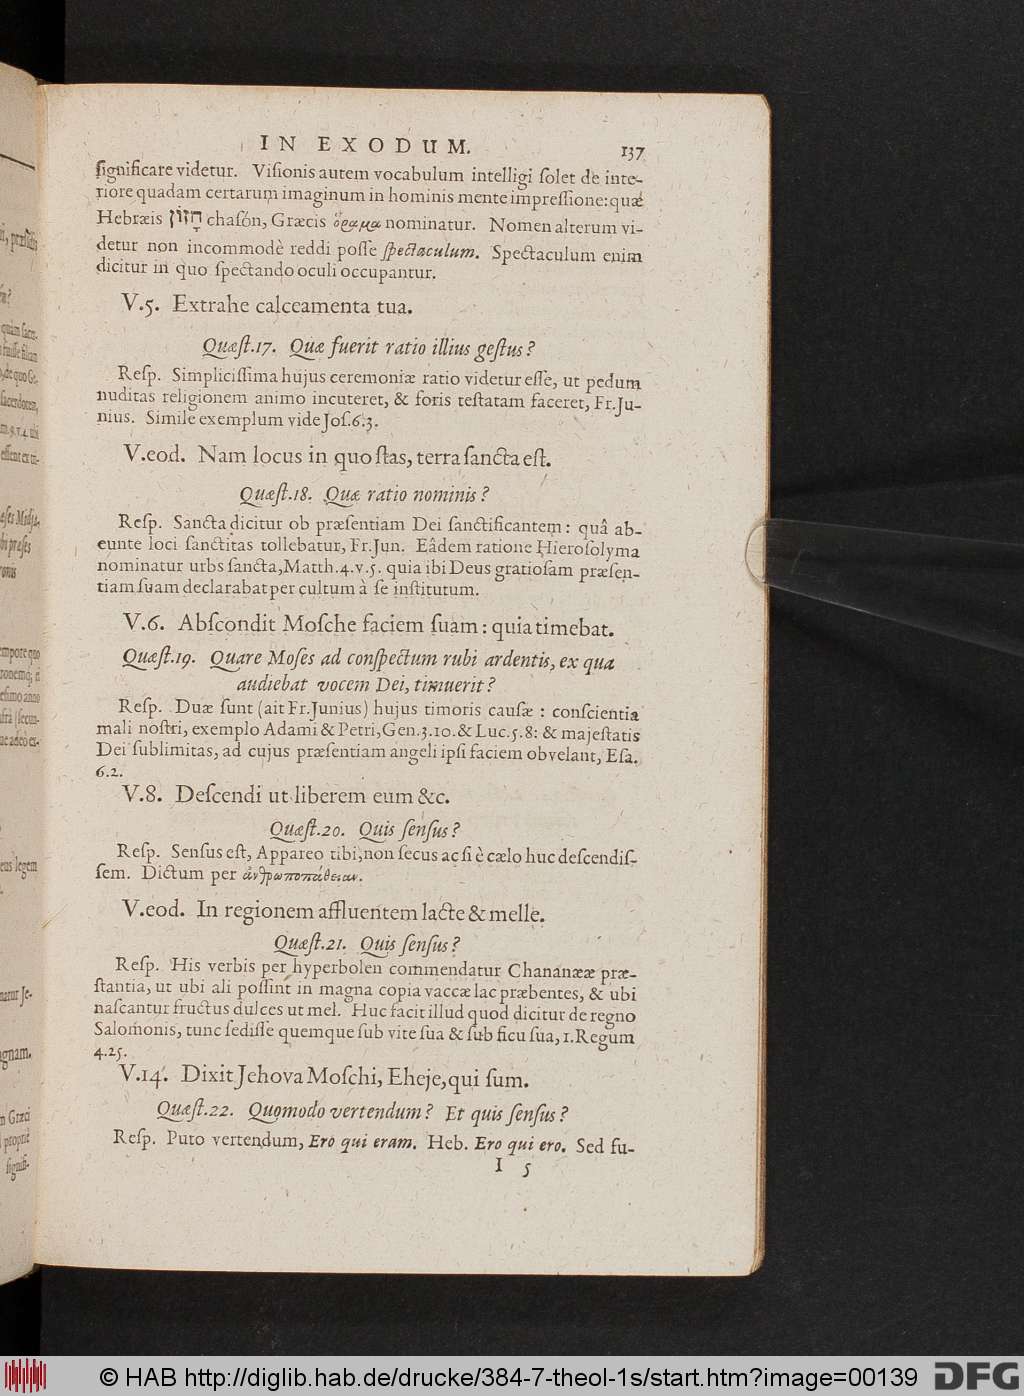 IN EXODUM. 137
ſignificare videtur. Viſionis autem vocabulum intelligi ſolet de inte-
riore quadam certarum imaginum in hominis mente impreſſione: quæ
Hebræis חָזוֹן chaſón, Græcis ὅραμα nominatur. Nomen alterum vi-
detur non incommodè reddi poſſe ſpectaculum. Spectaculum enim
dicitur in quo ſpectando oculi occupantur.
V.5. Extrahe calceamenta tua.
Quæſt.17. Quæ fuerit ratio illius geſtus?
Reſp. Simpliciſſima hujus ceremoniæ ratio videtur eſſe, ut pedum
nuditas religionem animo incuteret, & foris teſtatam faceret, Fr. Ju-
nius. Simile exemplum vide Joſ.6.3.
V.eod. Nam locus in quo ſtas, terra ſancta eſt.
Quæſt.18. Quæ ratio nominis?
Reſp. Sancta dicitur ob præſentiam Dei ſanctificantem: quâ ab-
eunte loci ſanctitas tollebatur, Fr. Jun. Eâdem ratione Hieroſolyma
nominatur urbs ſancta, Matth.4.v.5. quia ibi Deus gratioſam præſen-
tiam ſuam declarabat per cultum à ſe inſtitutum.
V.6. Abſcondit Moſche faciem ſuam: quia timebat.
Quæſt.19. Quare Moſes ad conſpectum rubi ardentis, ex qua
audiebat vocem Dei, timuerit?
Reſp. Duæ ſunt (ait Fr. Junius) hujus timoris cauſæ: conſcientia
mali noſtri, exemplo Adami & Petri, Gen.3.10. & Luc.5.8: & majeſtatis
Dei ſublimitas, ad cujus præſentiam angeli ipſi faciem obvelant, Eſa.
6.2.
V.8. Deſcendi ut liberem eum &c.
Quæſt.20. Quis ſenſus?
Reſp. Senſus eſt, Appareo tibi, non ſecus ac ſi è cælo huc deſcendiſ-
ſem. Dictum per ἀνθρωποπάθειαν.
V.eod. In regionem affluentem lacte & melle.
Quæſt.21. Quis ſenſus?
Reſp. His verbis per hyperbolen commendatur Chananææ præ-
ſtantia, ut ubi ali poſſint in magna copia vaccæ lac præbentes, & ubi
naſcantur fructus dulces ut mel. Huc facit illud quod dicitur de regno
Salomonis, tunc ſediſſe quemque ſub vite ſua & ſub ficu ſua, 1. Regum
4.25.
V.14. Dixit Jehova Moſchi, Eheje, qui ſum.
Quæſt.22. Quomodo vertendum? Et quis ſenſus?
Reſp. Puto vertendum, Ero qui eram. Heb. Ero qui ero. Sed fu-
I 5
© HAB http://diglib.hab.de/drucke/384-7-theol-1s/start.htm?image=00139 DFG